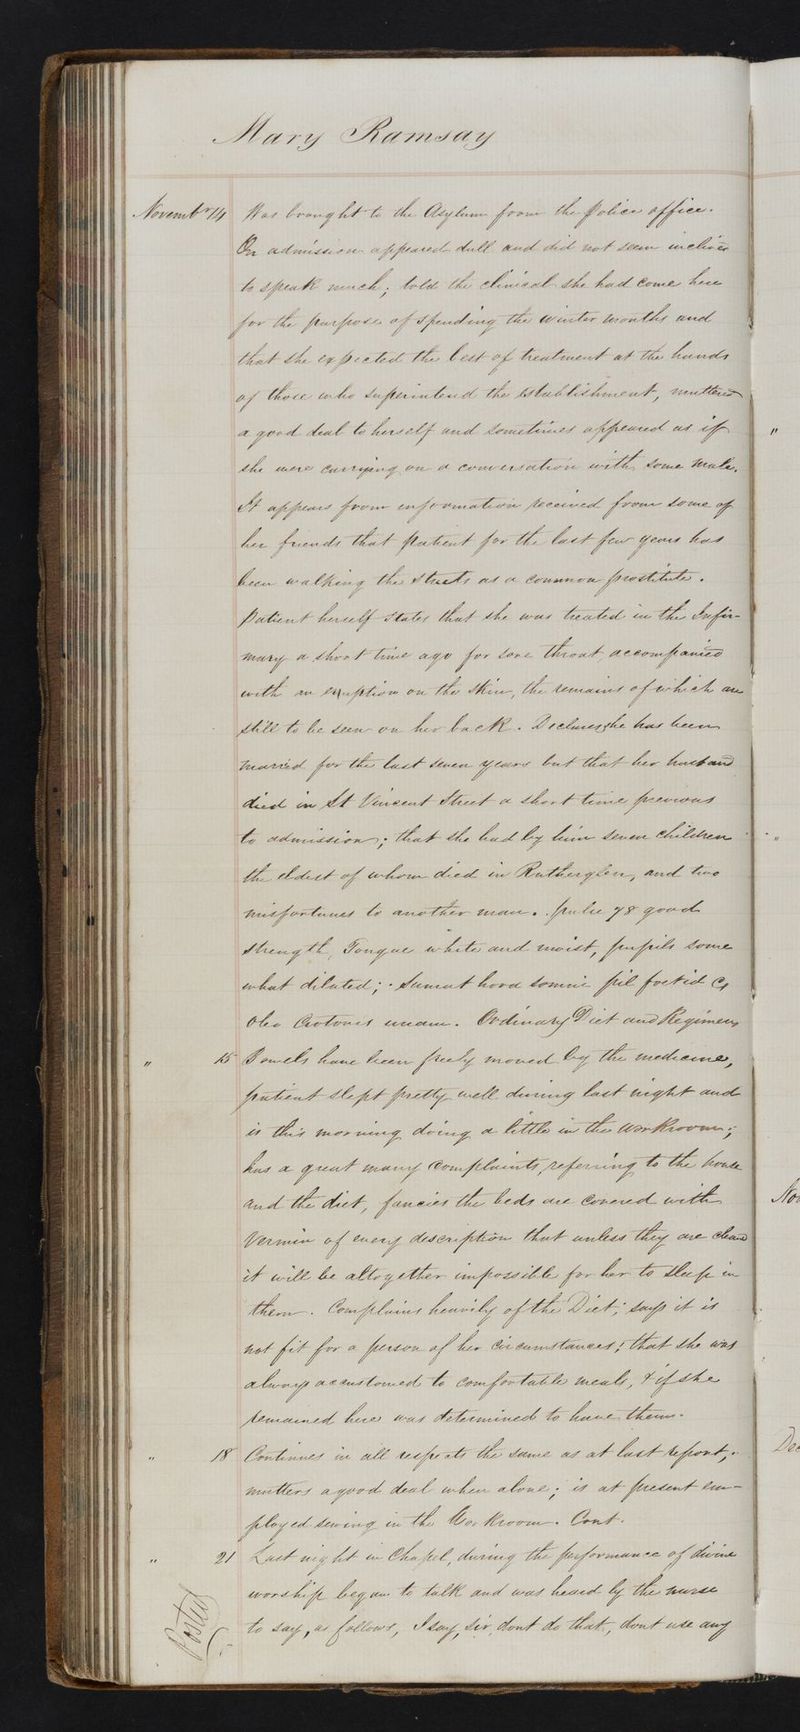 Mary Ramsay
Novembr 14 Was brought to the Asylum from the police office.
On admission appeared dull and did not seem inclined
to speak much; told the clinical she had come here
for the purpose of spending the winter months and
that she expected the best of treatment at the hands
of those who superintend the establishment, muttered
a good deal to herself and sometimes appeared as if
she were carrying on a conversation with some male.
It appears from information received from some of
her friends that patient for the last few years has
been walking the streets as a common prostitute.
Patient herself states that she was treated in the Infir-
mary a short time ago for sore throat, accompanied
with an eruption on the skin, the remains of which are
still to be seen on her back. Declares she has been
married for the last seven years but that her husband
died in St Vincent Street a short time previous
to admission; that she had by him seven children
the eldest of whom died in Rutherglen, and two
misfortunes to another man. pulse 78 good
strength, Tongue white and moist, pupils some
what dilated; Sumat hora somni pil foetid
Oleo Crotonis unam. Ordinary Diet and Regimen
" 15 Bowels have been freely moved by the medicine,
patient slept pretty well during last night and
is this morning doing a little in the Workroom;
has a great many complaints, referring to the house
and the diet, fancies the beds are covered with
Vermin of every description that unless they are cleaned
it will be altogether impossible for her to sleep in
them. Complains heavily of the Diet; says it is
not fit for a person of her circumstances; that she was
always accustomed to comfortable meals, & if she
remained here was determined to have them.
" 18 Continues in all respects the same as at last report,
mutters a good deal when alone; is at present em-
ployed sewing in the Workroom. Cont.
" 21 Last night in Chapel, during the performance of divine
worship began to talk and was heard by the nurse
to say, as follows, I say, sir, dont do that, dont use any
Posted
"
"
Nov
Dec